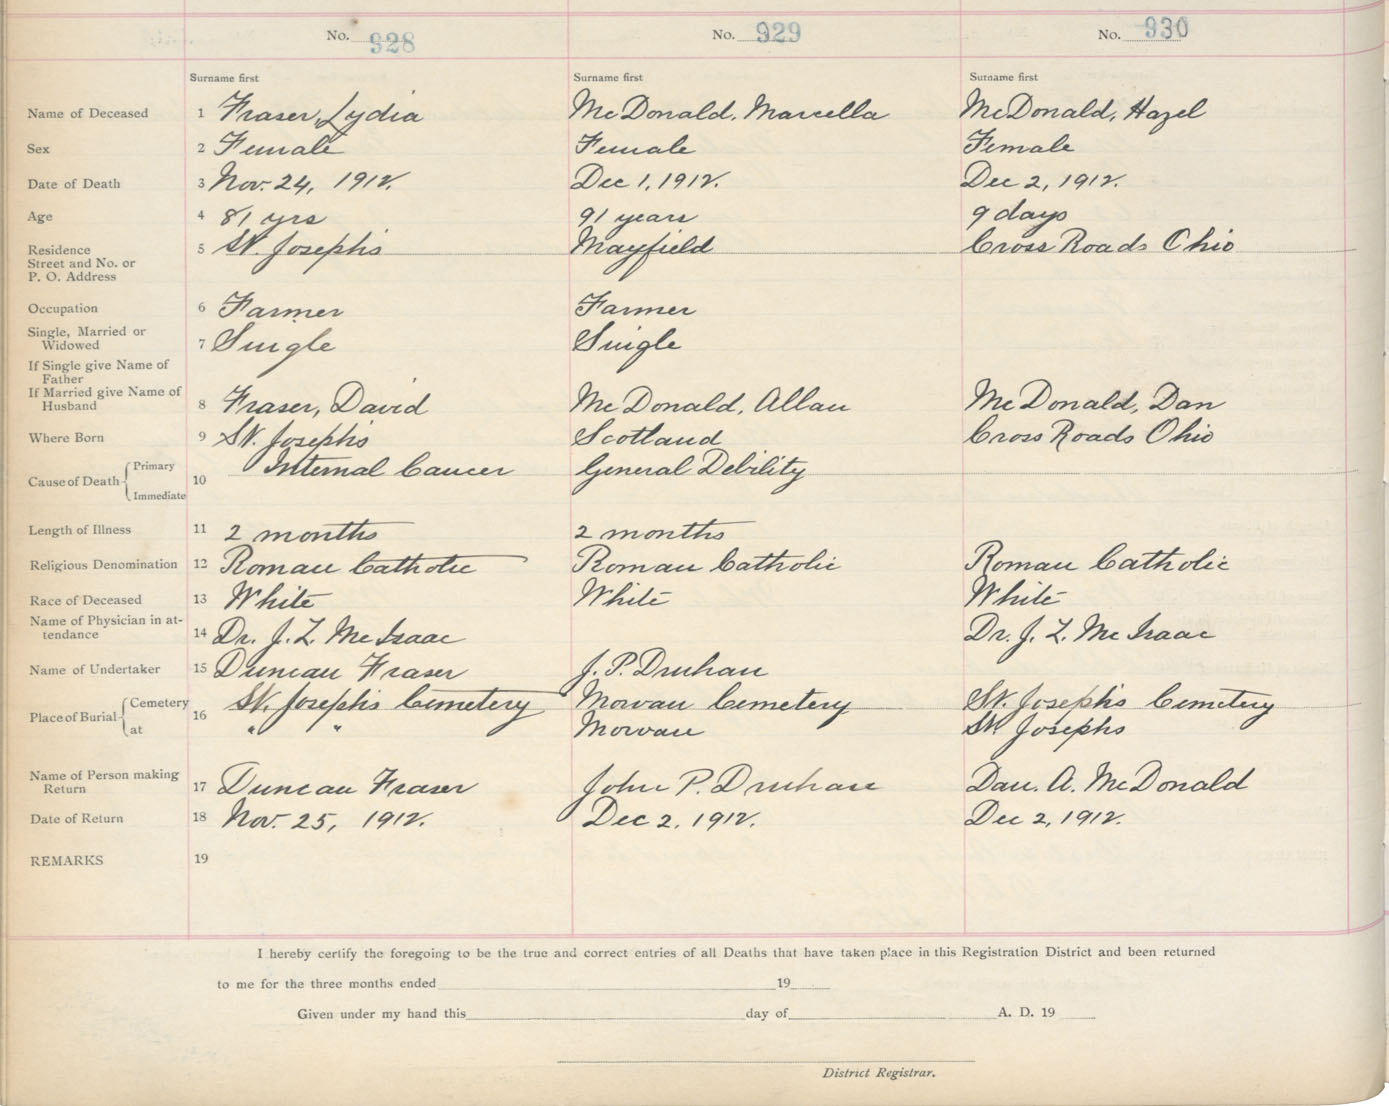 No. 928 No. 929 No. 930
Surname first Surname first Surname first
Name of Deceased 1 Fraser, Lydia McDonald, Marcella McDonald, Hazel
Sex 2 Female Female Female
Date of Death 3 Nov. 24, 1912. Dec 1, 1912. Dec 2, 1912.
Age 4 81 yrs 91 years 9 days
Residence
Street and No. or
P. O. Address 5 St. Joseph's Mayfield Cross Roads Ohio
Occupation 6 Farmer Farmer
Single, Married or
Widowed 7 Single Single
If Single give Name of
Father
If Married give Name of
Husband 8 Fraser, David McDonald, Allan McDonald, Dan
Where Born 9 St. Joseph's Scotland Cross Roads Ohio
Cause of Death Primary Internal Cancer General Debility
10
Immediate
Length of Illness 11 2 months 2 months
Religious Denomination 12 Roman Catholic Roman Catholic Roman Catholic
Race of Deceased 13 White White White
Name of Physician in at-
tendance 14 Dr. J. L. McIsaac Dr. J. L. McIsaac
Name of Undertaker 15 Duncan Fraser J. P. Druhan
Place of Burial Cemetery 16 St. Joseph's Cemetery Morvan Cemetery St. Joseph's Cemetery
at " " Morvan St Josephs
Name of Person making
Return 17 Duncan Fraser John P. Druhan Dan. A. McDonald
Date of Return 18 Nov. 25, 1912. Dec 2, 1912. Dec 2, 1912.
REMARKS 19
I hereby certify the foregoing to be the true and correct entries of all Deaths that have taken place in this Registration District and been returned
to me for the three months ended 19
Given under my hand this day of A. D. 19
District Registrar.